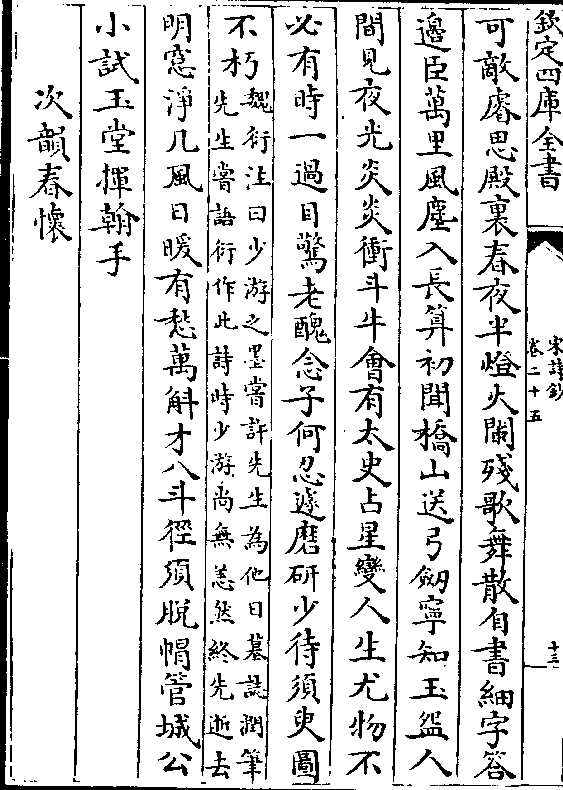 欽定四庫全書
宋詩鈔
卷二十五
十三
可敵睿思殿裏春夜半燈火闌殘歌舞散自書細字答
邊臣萬里風塵入長算初聞橋山送弓劒寧知玉盌人
間見夜光炎炎衝斗牛會有太史占星變人生尤物不
必有時一過目驚老醜念子何忍遽磨研少待須臾圖
不朽魏衍注曰少游之墨嘗許先生為他日墓誌潤筆
先生嘗語衍作此詩時少游尚無恙然終先逝去
明窓淨几風日暖有愁萬斛才八斗徑須脫帽管城公
小試玉堂揮翰手
次韻春懷